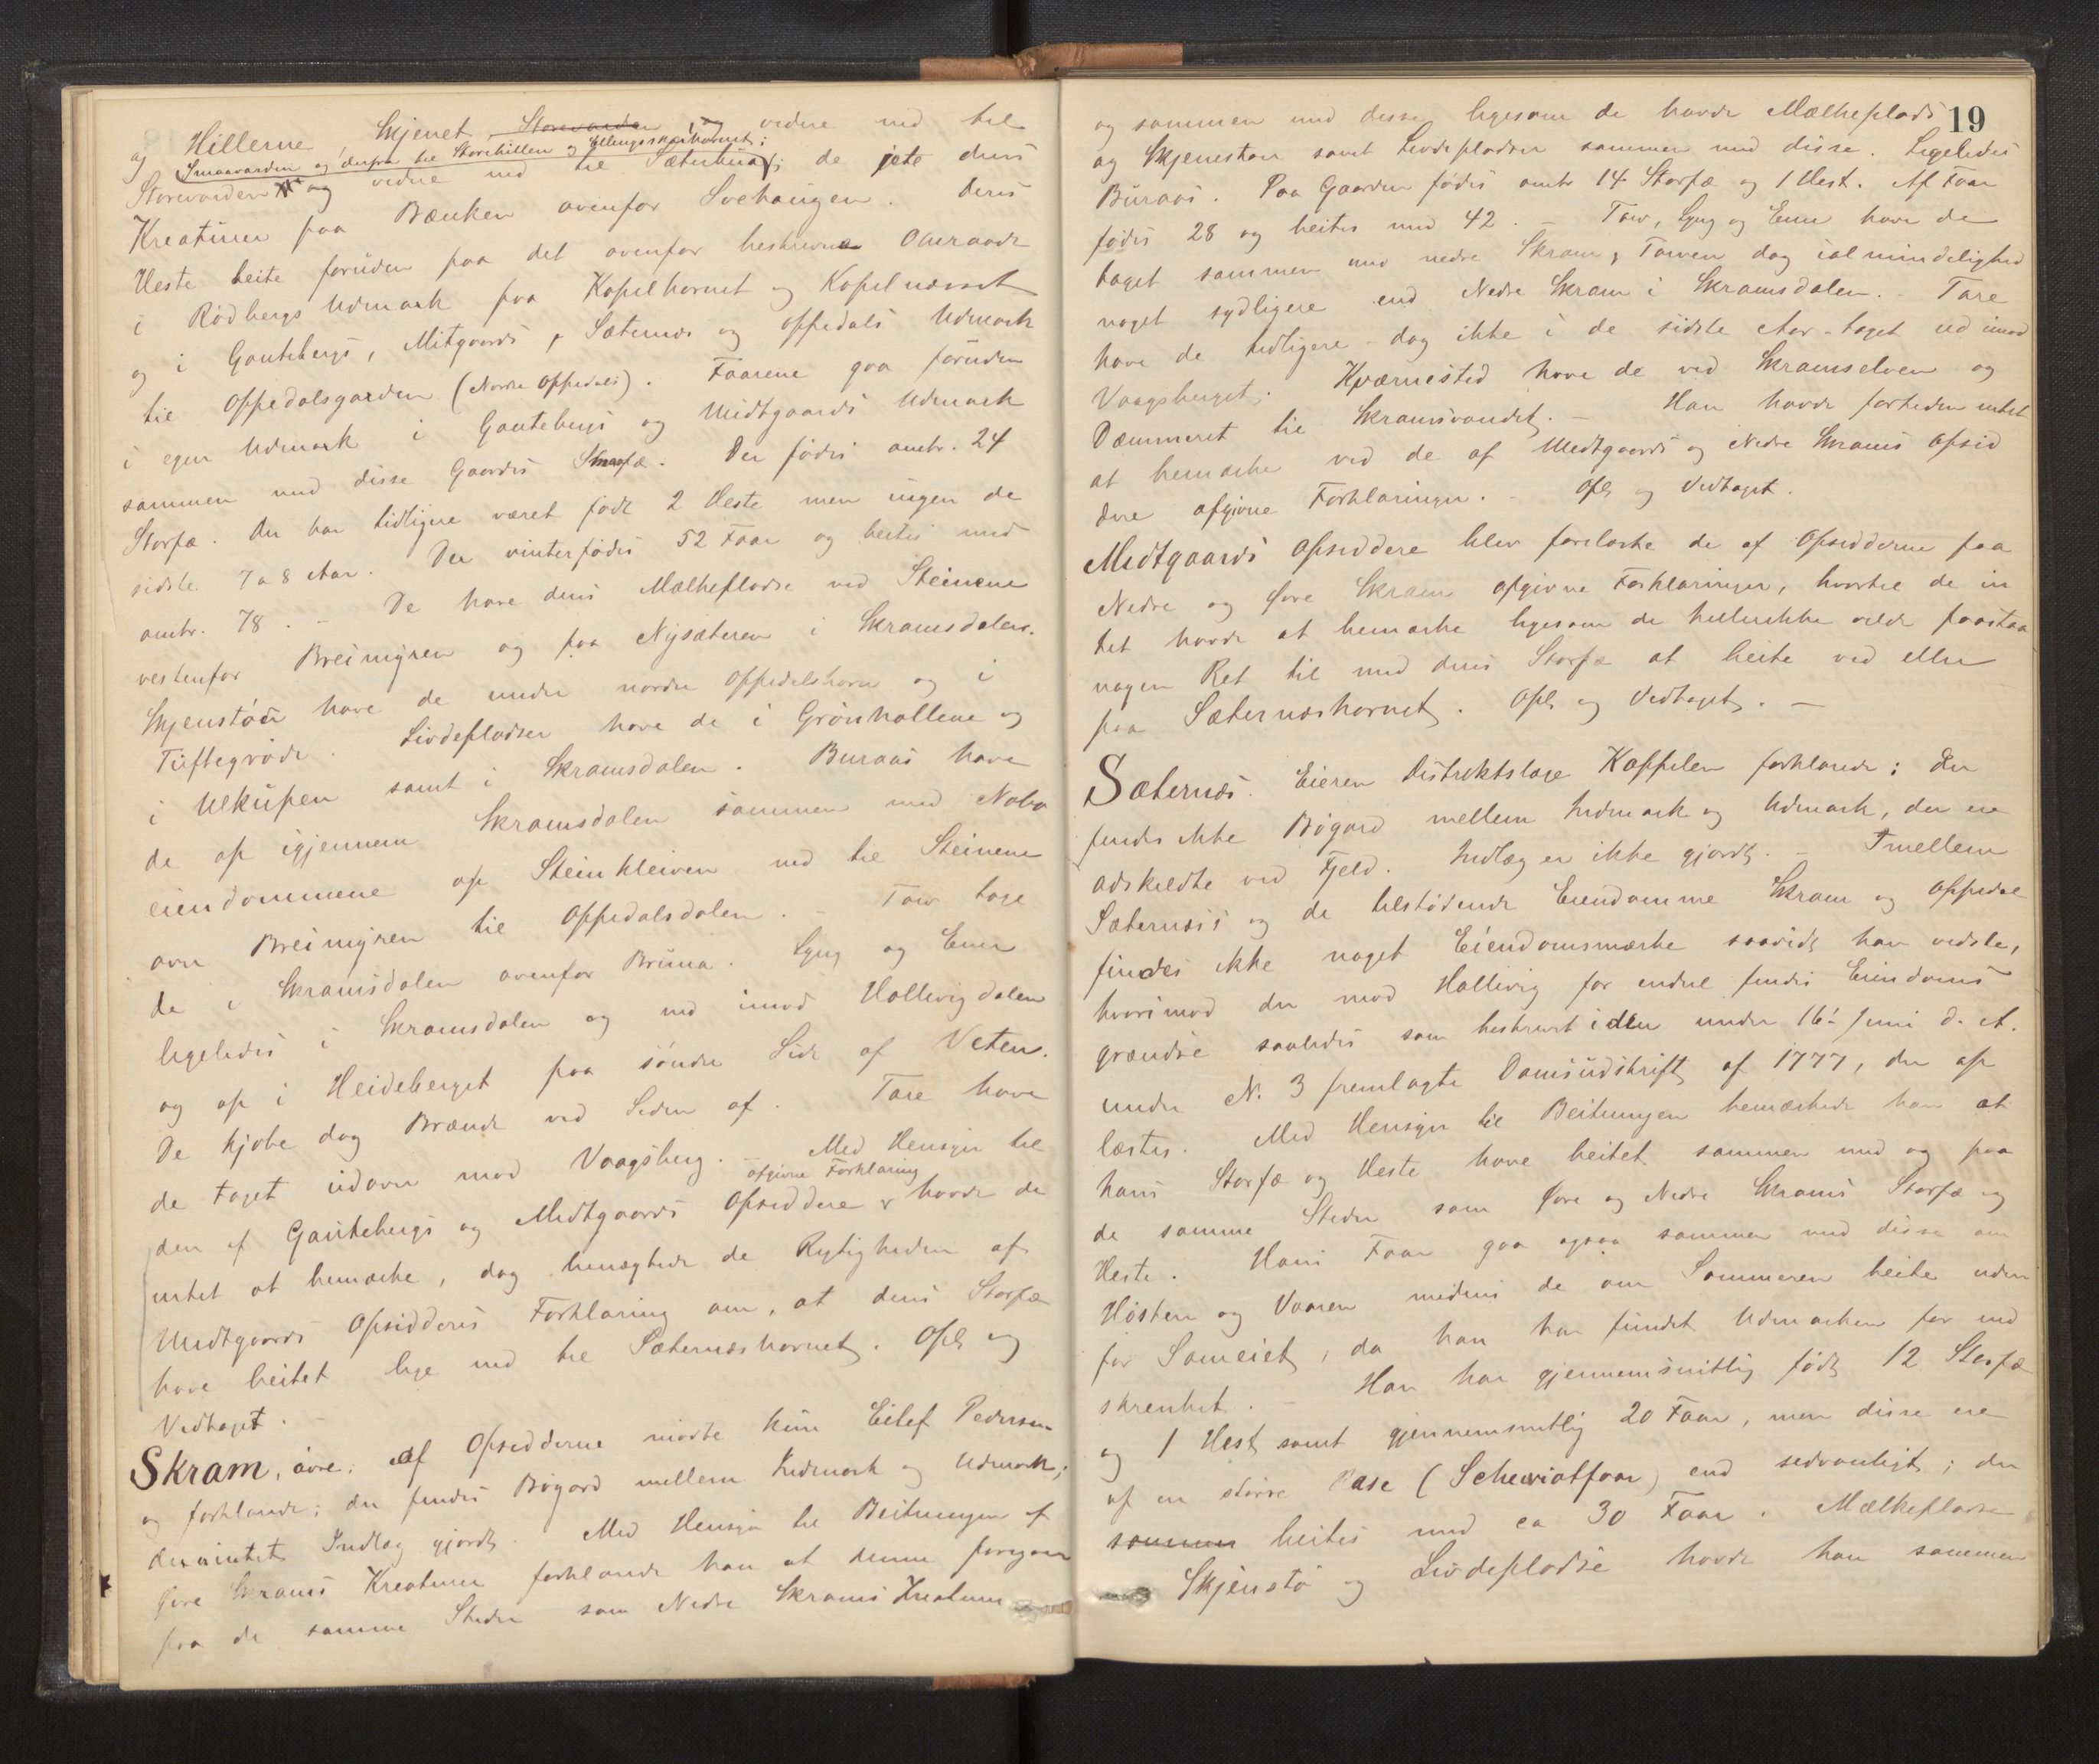 af Hillerne Skjenet Storevarden, og vedre ned til
Smaavarden og derfra til Storehillen og Ellengsskarhornet;
Storevarden og vedre ned til Sæterhua; de jete deres
Kreaturer paa Bænken ovenfor Svehaugen. Deres
Heste beite foruden paa det ovenfor beskrevne Omraade
i Rødbergs Udmark paa Kapelhornet og Kapelnæsset
og i Gautebergs, Mitgaards, Sæternæs og Oppedals Udmark
til Oppedalsgarden (Nordre Oppedals). Faarene gaa foruden
i egen Udmark i Gautebergs og Midtgaards Udmark
sammen med disse Gaardes Smaafæ. Der fødes omtr. 24
Storfæ. Der har tidligere været født 2 Heste men ingen de
sidste 7 a 8 Aar. Der vinterfødes 52 Faar og beites med
omtr. 78. – De have deres Mælkepladse ved Steinene
vestenfor Breimyren og paa Nysæteren i Skramsdalen.
Skjenstøde have de under nordre Oppedalshorn og i
Tuftegrøde. Livdepladser have de i Grönhallene og
i Ulkupen samt i Skramsdalen. Buraas have
de op igjennem Skramsdalen sammen med Nabo
eiendommene op Steinkleiven ned til Steinene
over Breimyren til Oppedalsdalen. – Torv tage
de i Skramsdalen ovenfor Bruna. Lyng og Ener
ligeledes i Skramsdalen og ned imod Hallevigdalen
og op i Heideberget paa söndre Side af Veten.
De kjøbe dog Brænde ved Siden af. Tare have
de taget udover mod Vaagsberg. – Med Hensyn til
den af Gautebergs og Midtgaards Opsiddere afgivne Forklaring havde de
intet at bemærke, dog benægtede de Rigtigheden af
Midtgaards Opsidderes Forklaring om, at deres Storfæ
have beitet lige ned til Sæternæshornet. Opl. og
Vedtaget. –
Skram, övre; af Opsidderne mödte kun Eilef Pedersen
og forklarede; der findes Bögard mellem Indmark og Udmark;
der er intet Indlæg gjort. Med Hensyn til Beitningen af
Övre Skrams Kreaturer forklarede han at denne foregaar
paa de samme Steder som Nedre Skrams Kreaturer
19
og sammen med disse ligesom de havde Mælkeplads
og Skjenestøer samt Livdepladser sammen med disse. Ligeledes
Buraas. Paa Gaarden fødes omtr 14 Storfæ og 1 Hest. Af Faar
fødes 28 og beites med 42. – Torv, Lyng og Ener have de
taget sammen med nedre Skram, Torven dog ialmindelighed
noget sydligere end Nedre Skram i Skramsdalen. – Tare
have de tidligere – dog ikke i de sidste Aar – taget ud imod
Vaagsberget. Kværnested have de ved Skramselven og
Dæmmeret til Skramsvandet. – Han havde forresten intet
at bemærke ved de af Midtgaards og Nedre Skrams Opsid
dere afgivne Forklaringer. – Opl. og Vedtaget.
Midtgaards Opsiddere blev forelæste de af Opsidderne paa
Nedre og Øvre Skram afgivne Forklaringer, hvortil de in
tet havde at bemærke ligesom de hellerikke vilde paastaa
nogen Ret til med deres Storfæ at beite ved eller
paa Sæternæshornet. Opl. og Vedtaget. –
Sæternæs. Eieren Distriktslæge Kappelen forklarede: Der
findes ikke Bögard mellem Indmark og Udmark, der ere
adskildte ved Fjeld. Indlæg er ikke gjort. – Imellem
Sæternæs og de tilstødende Eiendomme Skram og Oppedal
findes ikke noget Eiendomsmærke saavidt han vidste,
hvorimod der mod Hallevig for endel findes Eiendoms
grændse saaledes som beskrevet i den under 16' Juni d. A.
under N. 3 fremlagte Domsudskrift af 1777, der op
læstes. Med Hensyn til Beitningen bemærkede han at
hans Storfæ og Heste have beitet sammen med og paa
de samme Steder som Øvre og Nedre Skrams Storfæ og
Heste. Hans Faar gaa ogsaa sammen med disse om
Hösten og Vaaren medens de om Sommeren beite uden
for Sameiet, da han har fundet Udmarken for ind
skrenket. – Han har gjennemsnitlig født 12 Storfæ
og 1 Hest samt gjennemsnitlig 20 Faar, men disse ere
af en större Rase (Scheviotfaar) end sedvanligt; der
sammen beites med ca 30 Faar. Mælkepladse
Skjenstö og Livdepladse havde han sammen